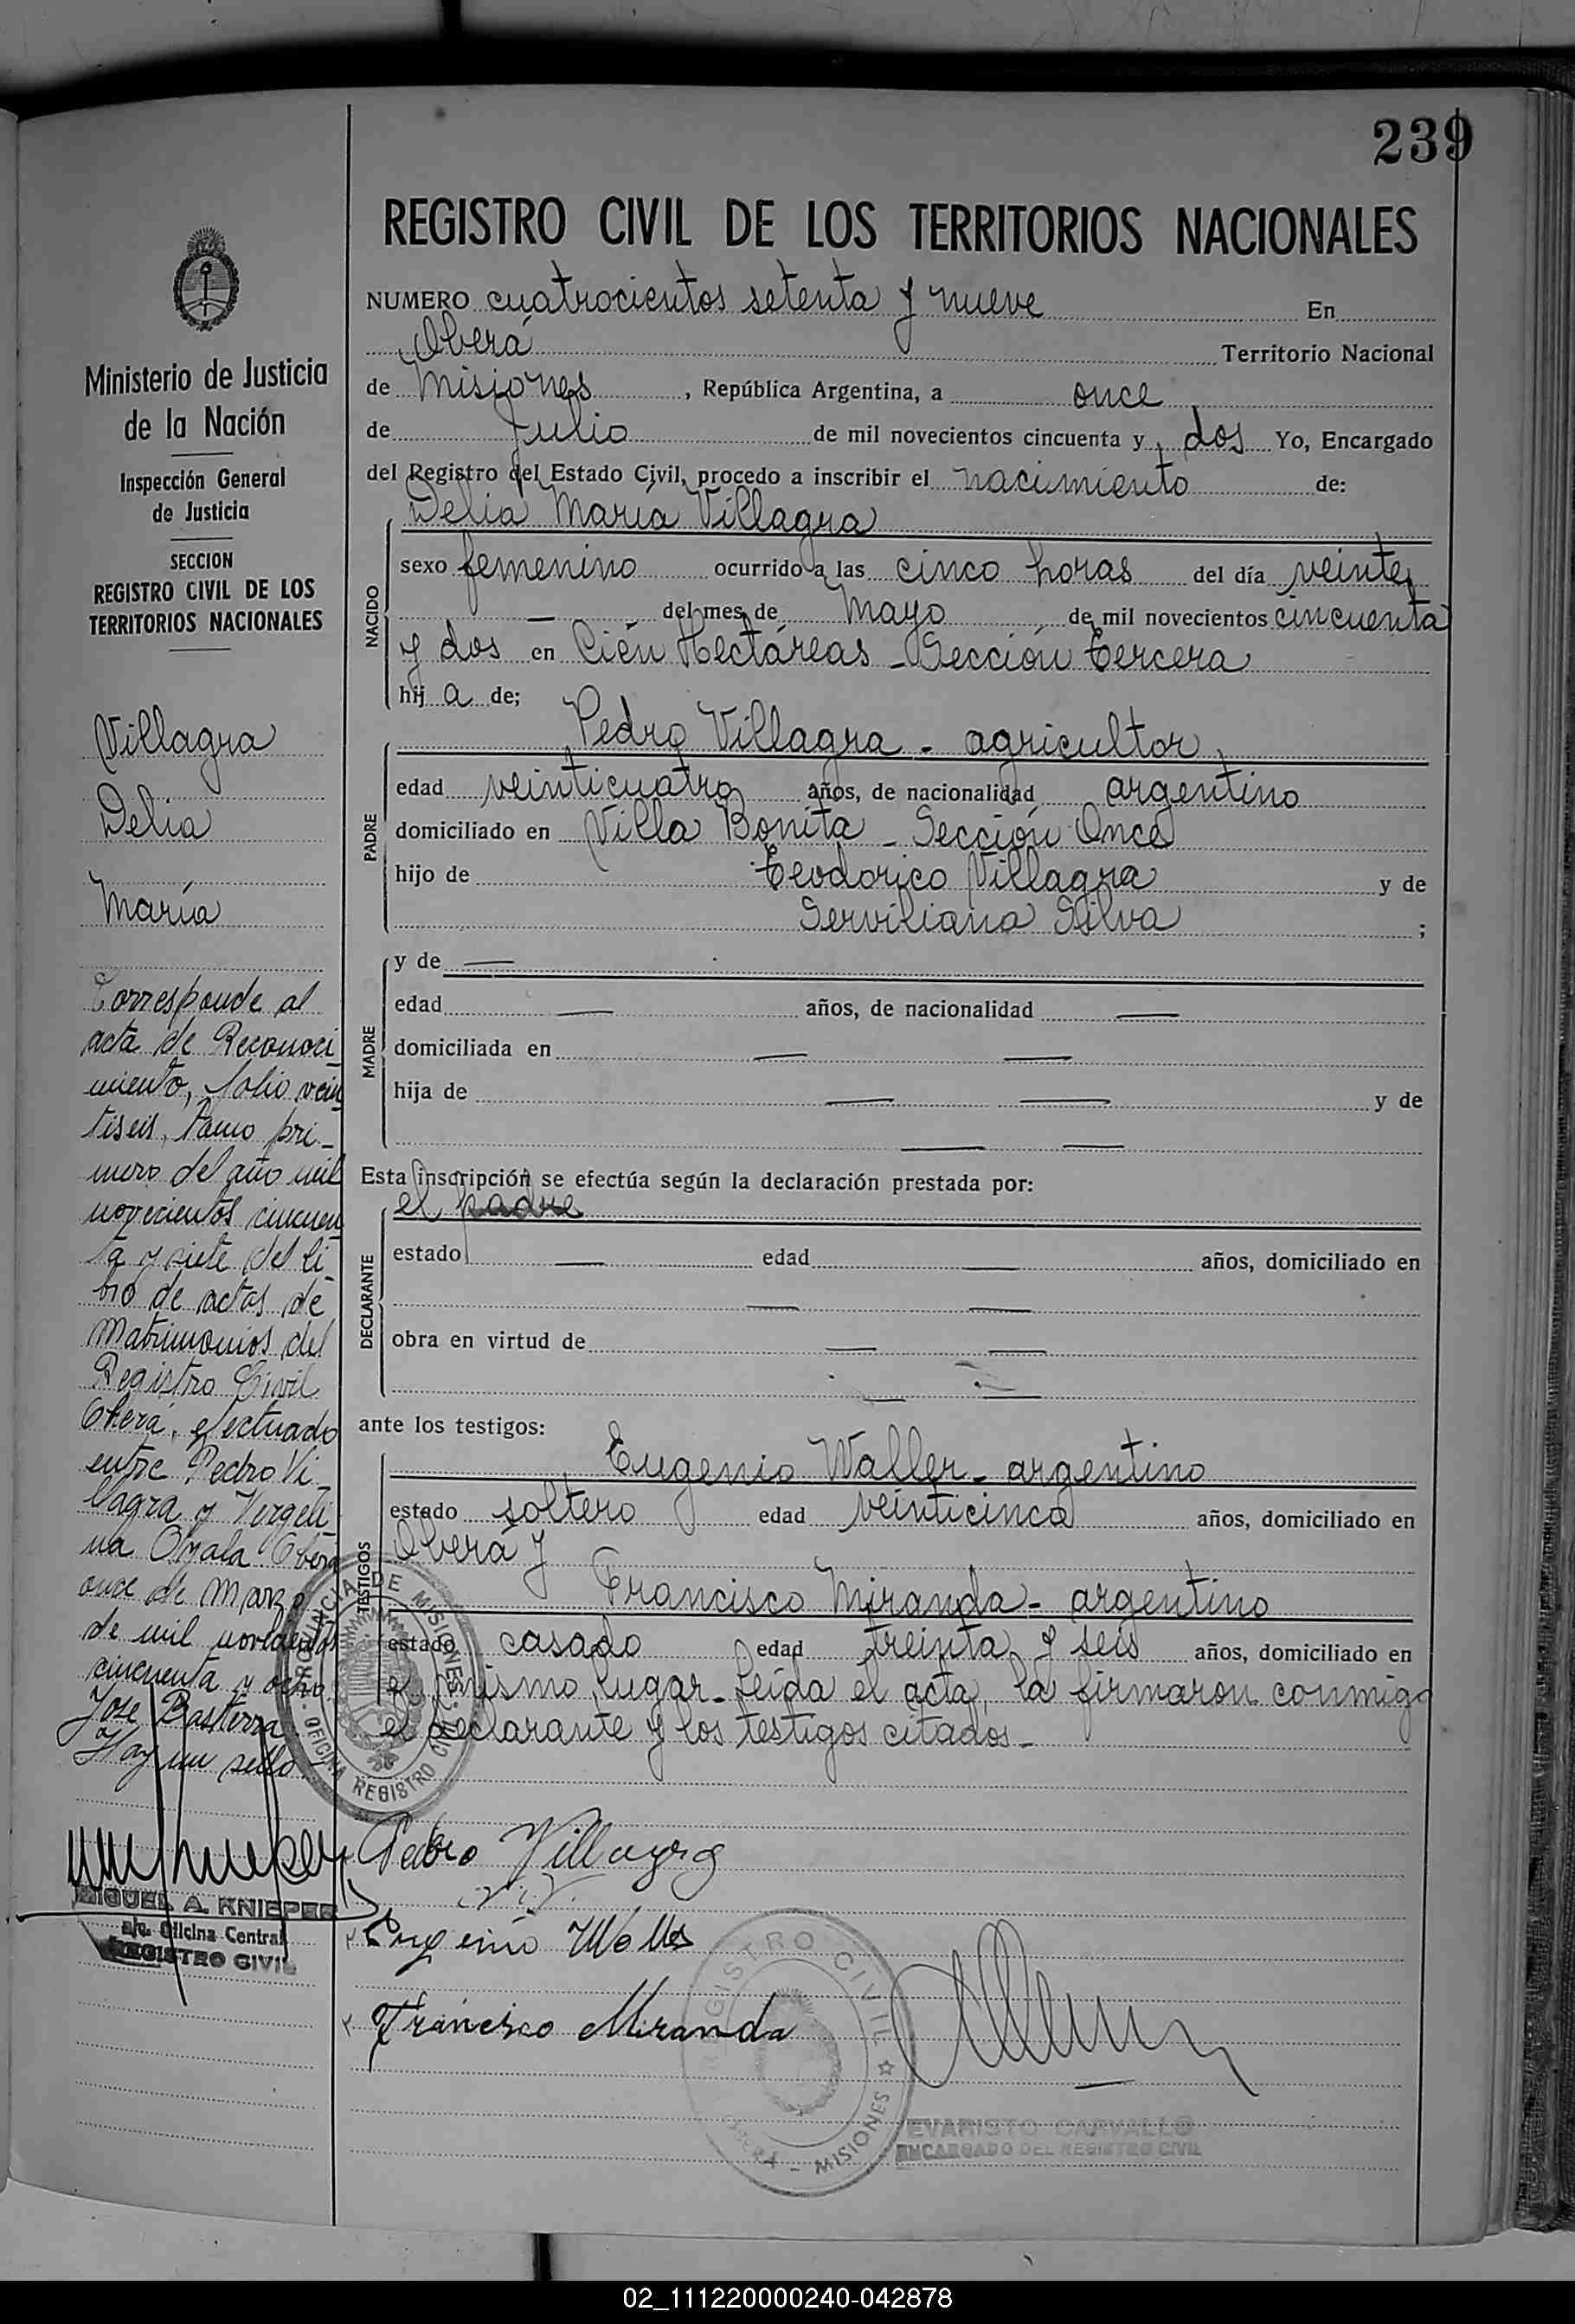 239
REGISTRO CIVIL DE LOS TERRITORIOS NACIONALES
NUMERO cuatrocientos setenta y nueve En
Oberá Territorio Nacional
de Misiones, República Argentina, a once
de Julio de mil novecientos cincuenta y dos Yo, Encargado
del Registro del Estado Civil, procedo a inscribir el nacimiento de:
Delia María Villagra
NACIDO
sexo femenino ocurrido a las cinco horas del día veinte
— del mes de Mayo de mil novecientos cincuenta
y dos en Cién Hectáreas - Sección tercera
hij a de;
Pedro Villagra - agricultor
PADRE
edad veinticuatro años, de nacionalidad argentino
domiciliado en Villa Bonita - Sección Once
hijo de Teodorico Villagra y de
Serviliana Silva ;
MADRE
y de —
edad — años, de nacionalidad —
domiciliada en — —
hija de — — y de
— —
Esta inscripción se efectúa según la declaración prestada por:
el padre
DECLARANTE
estado — edad — años, domiciliado en
— —
obra en virtud de — —
— —
ante los testigos:
TESTIGOS
Eugenio Waller - argentino
estado soltero edad veinticinco años, domiciliado en
Oberá y
Francisco Miranda - argentino
estado casado edad treinta y seis años, domiciliado en
el mismo lugar - Leída el acta, la firmaron conmigo
el declarante y los testigos citados -
Pedro Villagra
Eugenio
Francisco Miranda
REGISTRO CIVIL
MISIONES
EVARISTO CARVALLO
ENCARGADO DEL REGISTRO CIVIL
Ministerio de Justicia
de la Nación
Inspección General
de Justicia
SECCION
REGISTRO CIVIL DE LOS
TERRITORIOS NACIONALES
Villagra
Delia
María
Corresponde al
acta de Reconoci
miento, folio vein
tiseis, tomo pri-
mero del año mil
novecientos cincuen
ta y siete del li
bro de actas de
Matrimonios del
Registro Civil
Oberá, efectuado
entre Pedro Vi-
llagra y Vergeli
na Oberá
once de Marzo
de mil novecientos
cincuenta y ocho
Jose Basterra
Hay un sello.
PROVINCIA DE MISIONES
OFICINA REGISTRO CIVIL
MIGUEL A. KNIEPER
a/c. Oficina Central
REGISTRO CIVIL
02_111220000240-042878